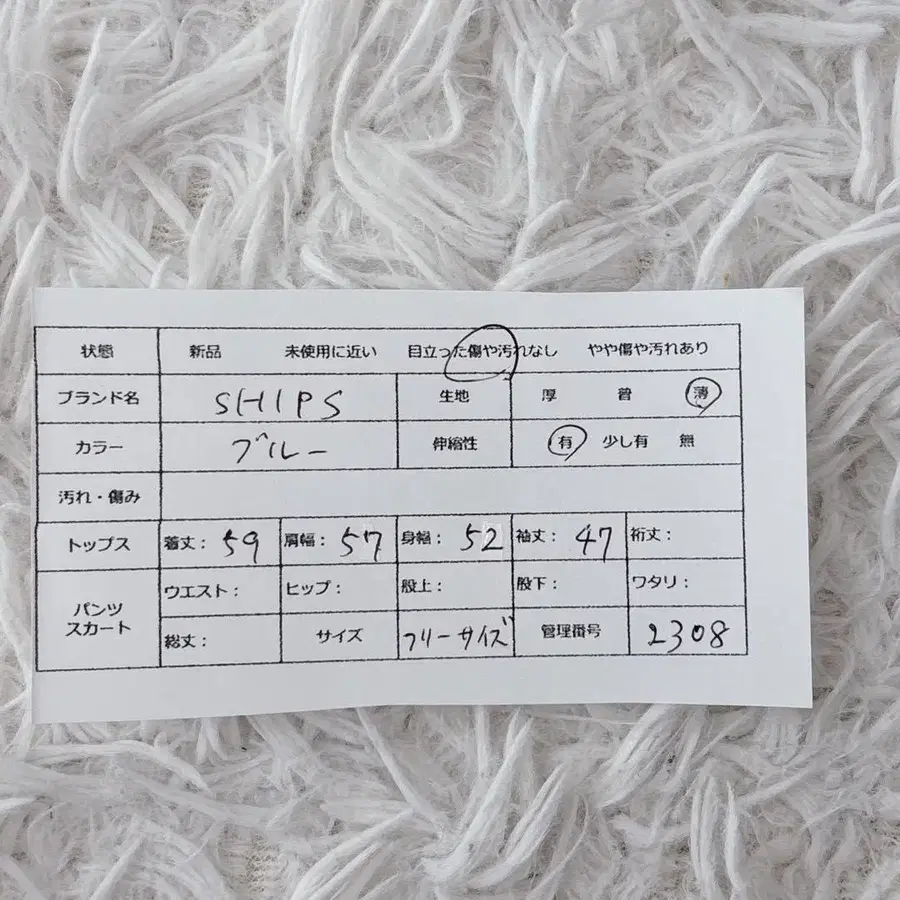 状態 新品 未使用に近い 目立った傷や汚れなし やや傷や汚れあり
ブランド名 SHIPS 生地 厚 普 薄
カラー ブルー 伸縮性 有 少し有 無
汚れ・傷み
トップス 着丈: 59 肩幅: 57 身幅: 52 袖丈: 47 裄丈:
パンツ スカート ウエスト: ヒップ: 股上: 股下: ワタリ:
総丈: サイズ フリーサイズ 管理番号 2308